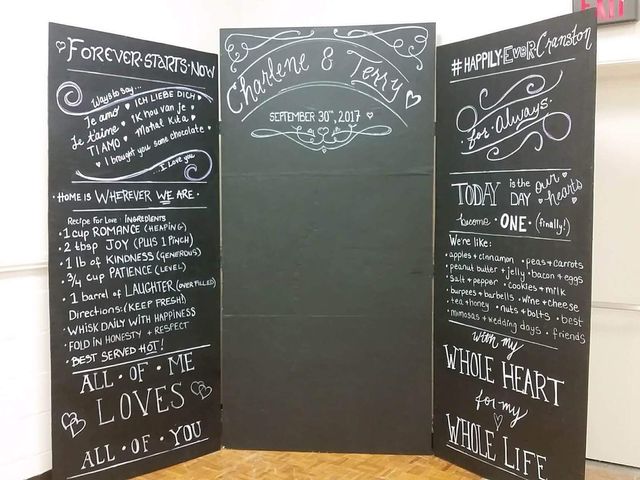 FOREVER·STARTS·NOW
Ways to say...
Te amo ♥ ICH LIEBE DICH ♥
Je t'aime ♥ IK hou van je
TI AMO ♥ Mahal Kita ♥
♥ I brought you some chocolate ♥
...I Love you
·HOME IS WHEREVER WE ARE·
RECIPE FOR LOVE: INGREDIENTS
·1 cup ROMANCE (HEAPING)
·2 tbsp JOY (PLUS 1 PINCH)
·1 lb of KINDNESS (GENEROUS)
·3/4 cup PATIENCE (LEVEL)
·1 barrel of LAUGHTER (OVER FILLED)
Directions: (KEEP FRESH!)
·WHISK DAILY WITH HAPPINESS
·FOLD IN HONESTY + RESPECT
·BEST SERVED HOT!
ALL·OF·ME
LOVES
ALL·OF·YOU
Charlene & Terry
SEPTEMBER 30TH, 2017
EXIT
#HAPPILY·EVER·Cranston
for·Always·
TODAY is the DAY our hearts
become·ONE·(finally!)
We're like:
·apples + cinnamon ·peas + carrots
·peanut butter + jelly ·bacon + eggs
·Salt + pepper ·cookies + milk
·burpees + barbells ·wine + cheese
·tea + honey ·nuts + bolts ·best
·mimosas + wedding days ·friends
with my
WHOLE HEART
for my
WHOLE LIFE